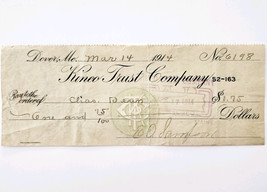 Dover, Me. Mar 14 1914 No. 6198
Kineo Trust Company 52-163
Pay to the order of Chas. Dean $1.75
One and 75/100 Dollars